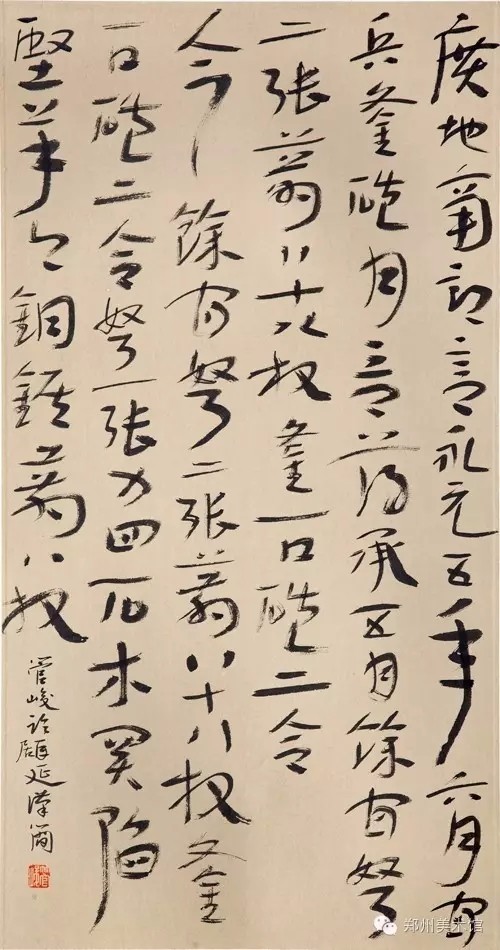 廣地南部言永元五年六月官
兵釜磑月言簿承五月餘官弩
二張箭八十八枚釜一口磑二合
今餘官弩二張箭八十八枚釜
一口磑二合弩一張力四石木関陷
堅羊頭銅鍭箭八枚
管峻臨居延漢簡
郑州美术馆